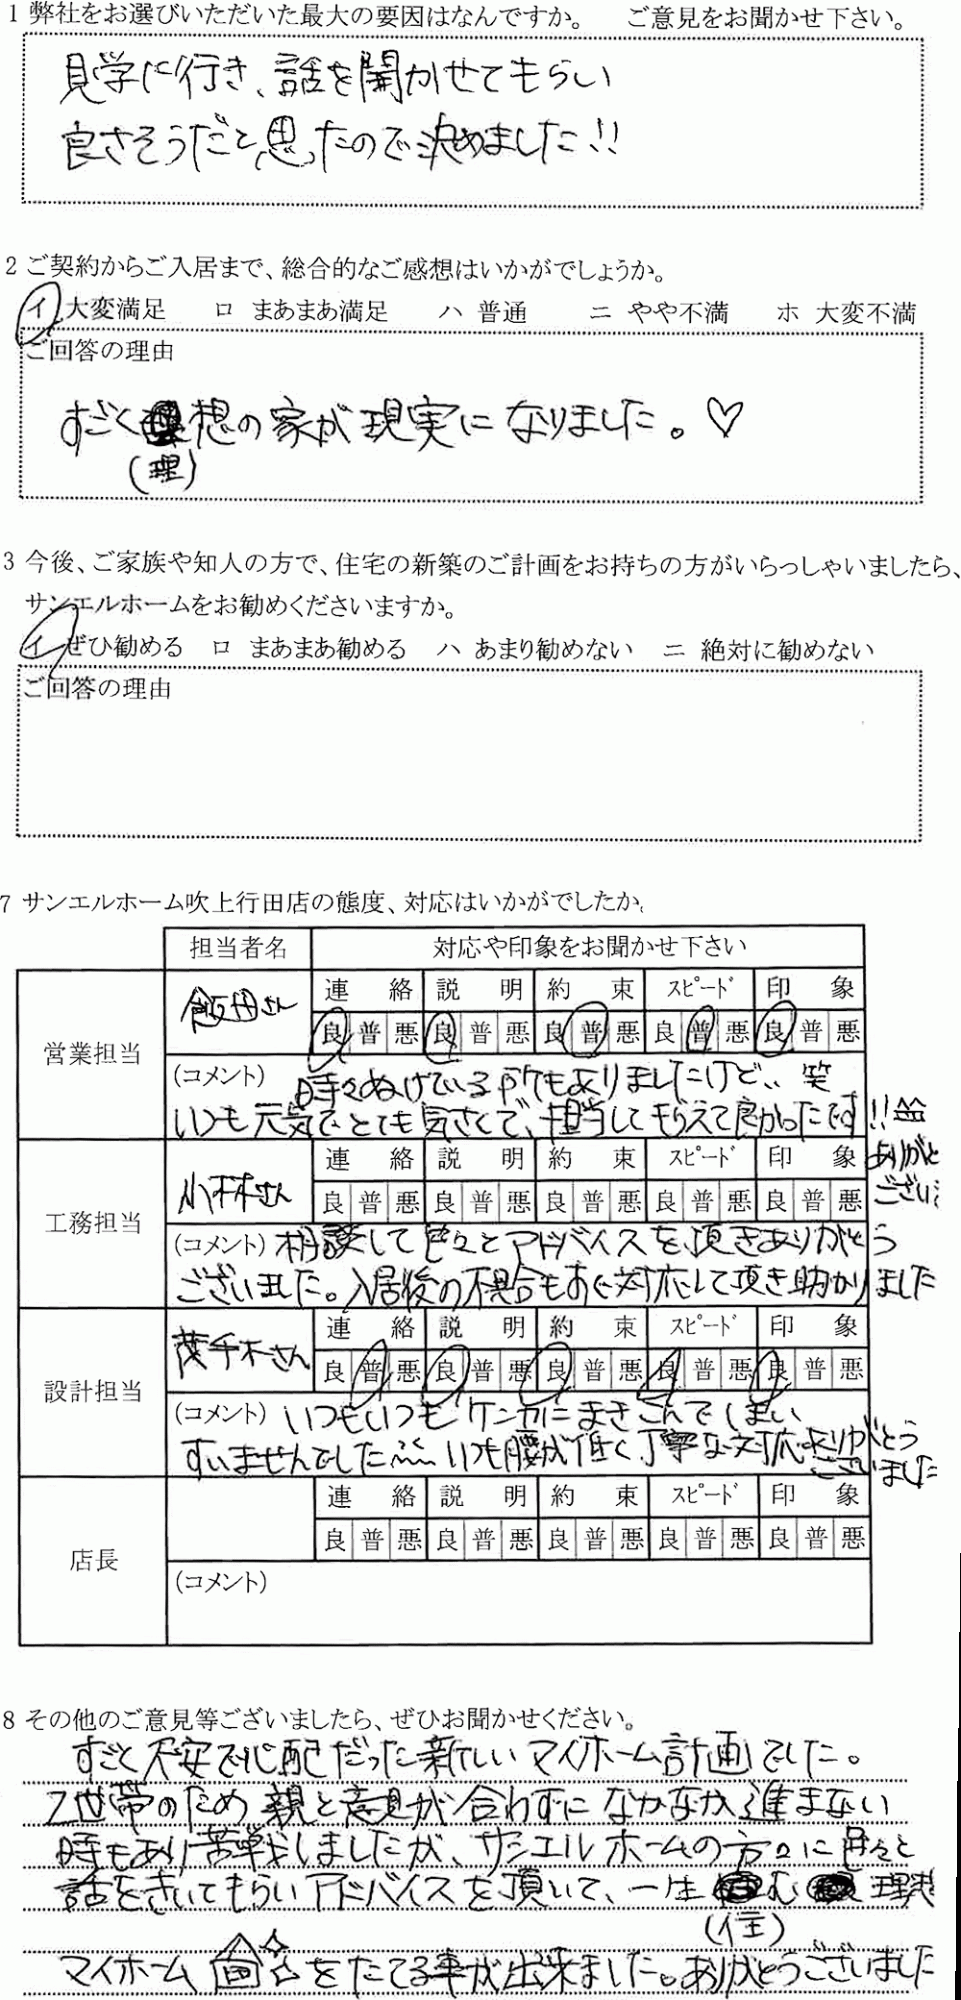 1 弊社をお選びいただいた最大の要因はなんですか。 ご意見をお聞かせ下さい。
見学に行き、話を聞かせてもらい
良さそうだと思ったので決めました!!
2 ご契約からご入居まで、総合的なご感想はいかがでしょうか。
イ 大変満足 ロ まあまあ満足 ハ 普通 ニ やや不満 ホ 大変不満
ご回答の理由
すごく想の家が現実になりました。♡
(理)
3 今後、ご家族や知人の方で、住宅の新築のご計画をお持ちの方がいらっしゃいましたら、
サンエルホームをお勧めくださいますか。
イ ぜひ勧める ロ まあまあ勧める ハ あまり勧めない ニ 絶対に勧めない
ご回答の理由
7 サンエルホーム吹上行田店の態度、対応はいかがでしたか。
担当者名 対応や印象をお聞かせ下さい
営業担当 飯田さん 連絡 説明 約束 スピード 印象
良 普 悪 良 普 悪 良 普 悪 良 普 悪 良 普 悪
(コメント) 時々ぬけている所もありましたけど、、笑
いつも元気でとても気さくで、担当してもらえて良かったです!!
ありがと
ござい
工務担当 小林さん 連絡 説明 約束 スピード 印象
良 普 悪 良 普 悪 良 普 悪 良 普 悪 良 普 悪
(コメント) 相談して色々とアドバイスを頂きありがとう
ございました。入居後の不具合もすぐ対応して頂き助かりました
設計担当 茂手木さん 連絡 説明 約束 スピード 印象
良 普 悪 良 普 悪 良 普 悪 良 普 悪 良 普 悪
(コメント) いつもいつもケンカにまきこんでしまい
すいませんでした いつも腰が低く丁寧な対応ありがとう
ございました
店長 連絡 説明 約束 スピード 印象
良 普 悪 良 普 悪 良 普 悪 良 普 悪 良 普 悪
(コメント)
8 その他のご意見等ございましたら、ぜひお聞かせください。
すごく不安で心配だった新しいマイホーム計画でした。
2世帯のため親と意見が合わずになかなか進まない
時もあり苦戦しましたが、サンエルホームの方々に色々と
話をきいてもらいアドバイスを頂いて、一生む理想
(住)
マイホームをたてる事が出来ました。ありがとうございました